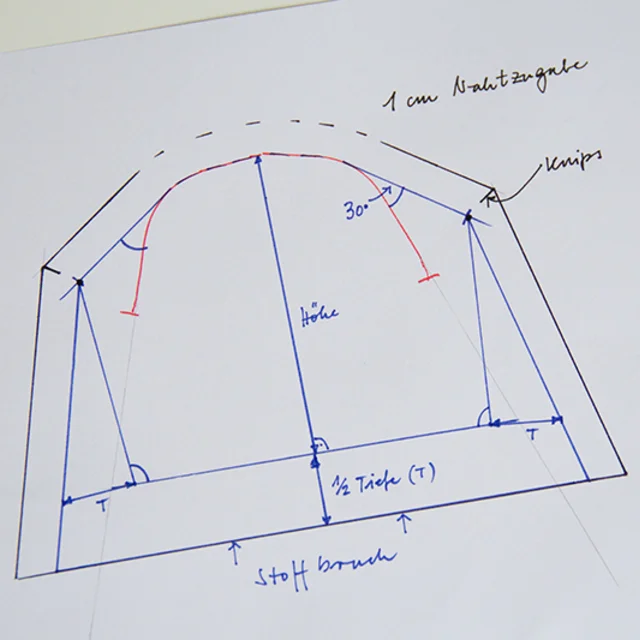 1 cm Nahtzugabe
Knips
30°
Höhe
T
½ Tiefe (T)
T
Stoffbruch